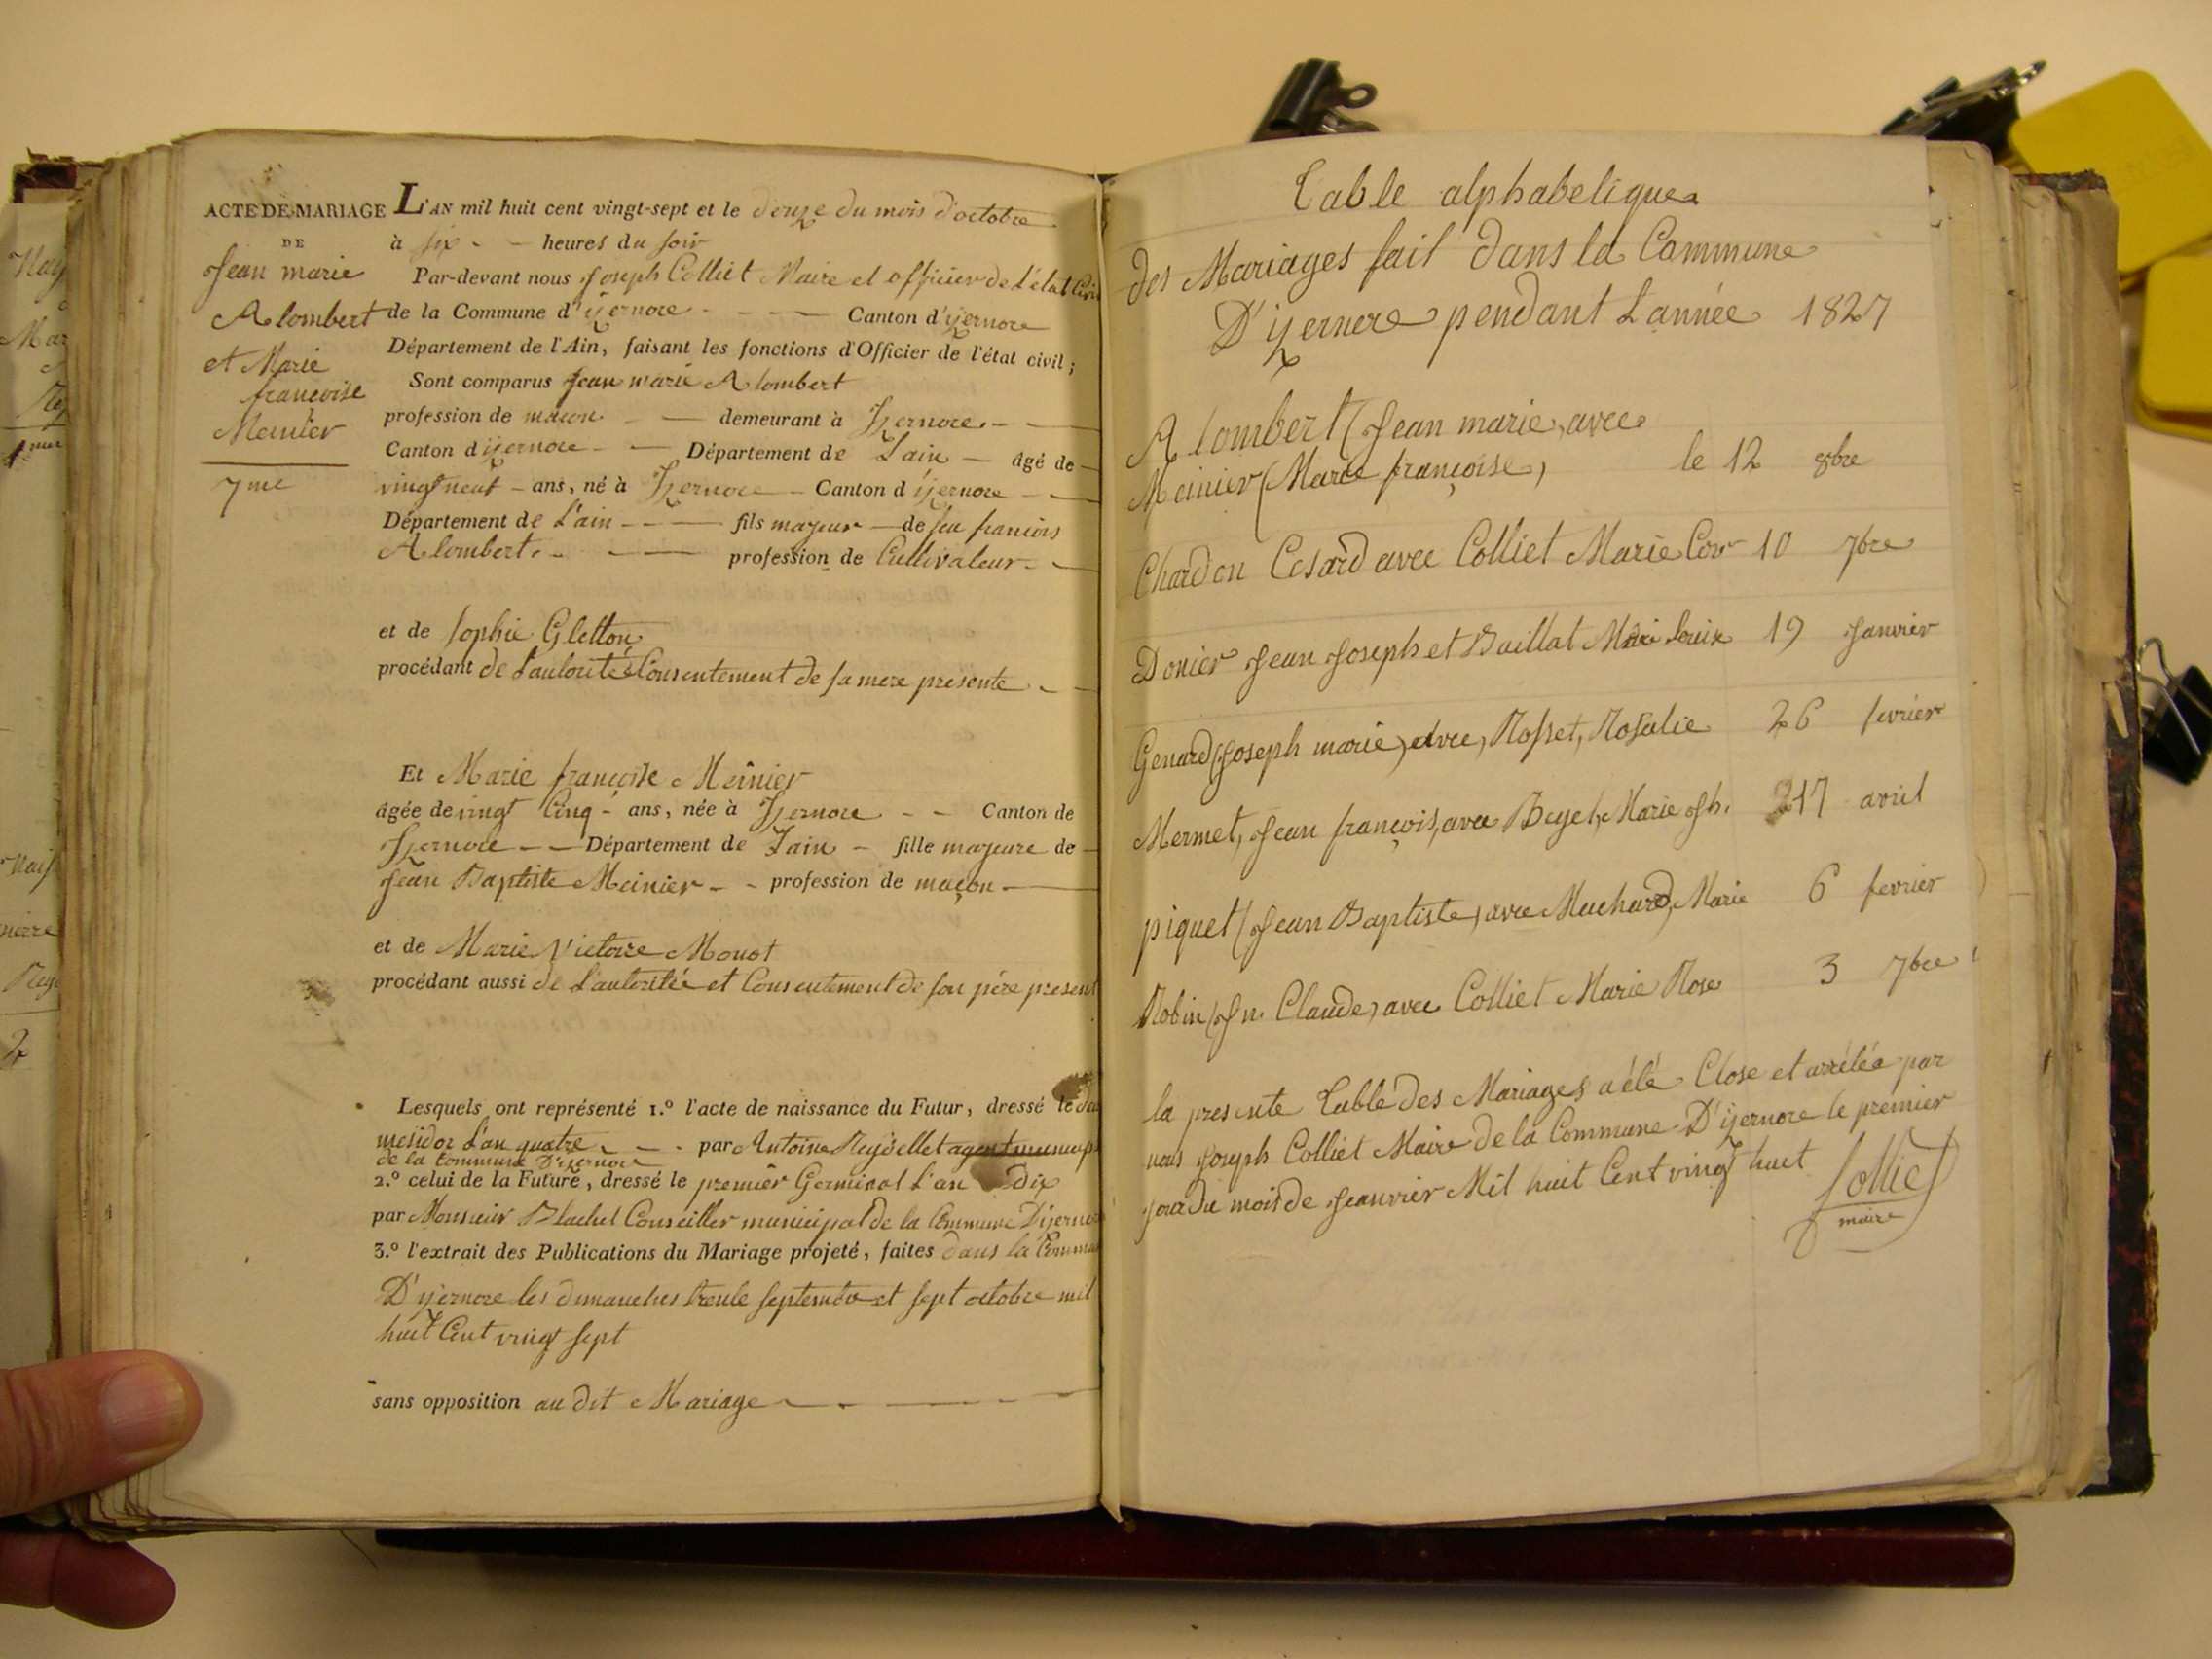 ACTE DE MARIAGE
DE
Jean marie
Alombert
et Marie
francoise
Meinier
7me
L'AN mil huit cent vingt-sept et le douze du mois d'octobre
à six - - heures du soir
Par-devant nous Joseph Colliet Maire et officier de l'état Civil
de la Commune d'izernore - - - Canton d'izernore
Département de l'Ain, faisant les fonctions d'Officier de l'état civil;
Sont comparus Jean marie Alombert
profession de macon - - demeurant à Izernore - -
Canton d'izernore - - Département de L'ain - âgé de -
vingt neuf - ans, né à Izernore - Canton d'izernore - -
Département de L'ain - - - fils majeur - de feu francois
Alombert - - - profession de Cultivateur - -
et de Sophie Gletton
procédant de L'autorité & Consentement de sa mere presente - -
Et Marie francoise Meinier
âgée de vingt Cinq - ans, née à Izernore - - Canton de
Izernore - - Département de L'ain - fille majeure de -
Jean Baptiste Meinier - - profession de maçon -
et de Marie Victoire Monot
procédant aussi de L'autorité et Consentement de son père present
Lesquels ont représenté 1.º l'acte de naissance du Futur, dressé le
mesidor L'an quatre - - - par Antoine Reydellet agent municip
de la Commune D'izernore
2.º celui de la Future, dressé le premier Germinal L'an dix
par Monsieur Blachet Conseiller municipal de la Commune D'izernore
3.º l'extrait des Publications du Mariage projeté, faites dans la Commu
D'izernore les dimanches trente septembre et sept octobre mil
huit Cent vingt sept
sans opposition au dit Mariage - - - -
Table alphabetique
des Mariages fait dans la Commune
D'izernore pendant L'année 1827
Alombert (Jean marie, avec
Meinier (Marie françoise, le 12 8bre
Chardon Cesard avec Colliet Marie 10 7bre
Donier Jean Joseph et Baillat Marie Louise 19 Janvier
Genard (Joseph marie, avec, Rosset, Rosalie 26 fevrier
Mermet, Jean françois, avec Beyet, Marie Jh. 17 avril
piquet (Jean Baptiste, avec Muchard, Marie 6 fevrier
Robin (Jn. Claude, avec Colliet Marie Rose 3 7bre
la presente Table des Mariages a été Close et arrêtée par
nous Joseph Colliet Maire de la Commune D'izernore le premier
jour Du mois de Jeanvier Mil huit Cent vingt huit
Colliet
maire